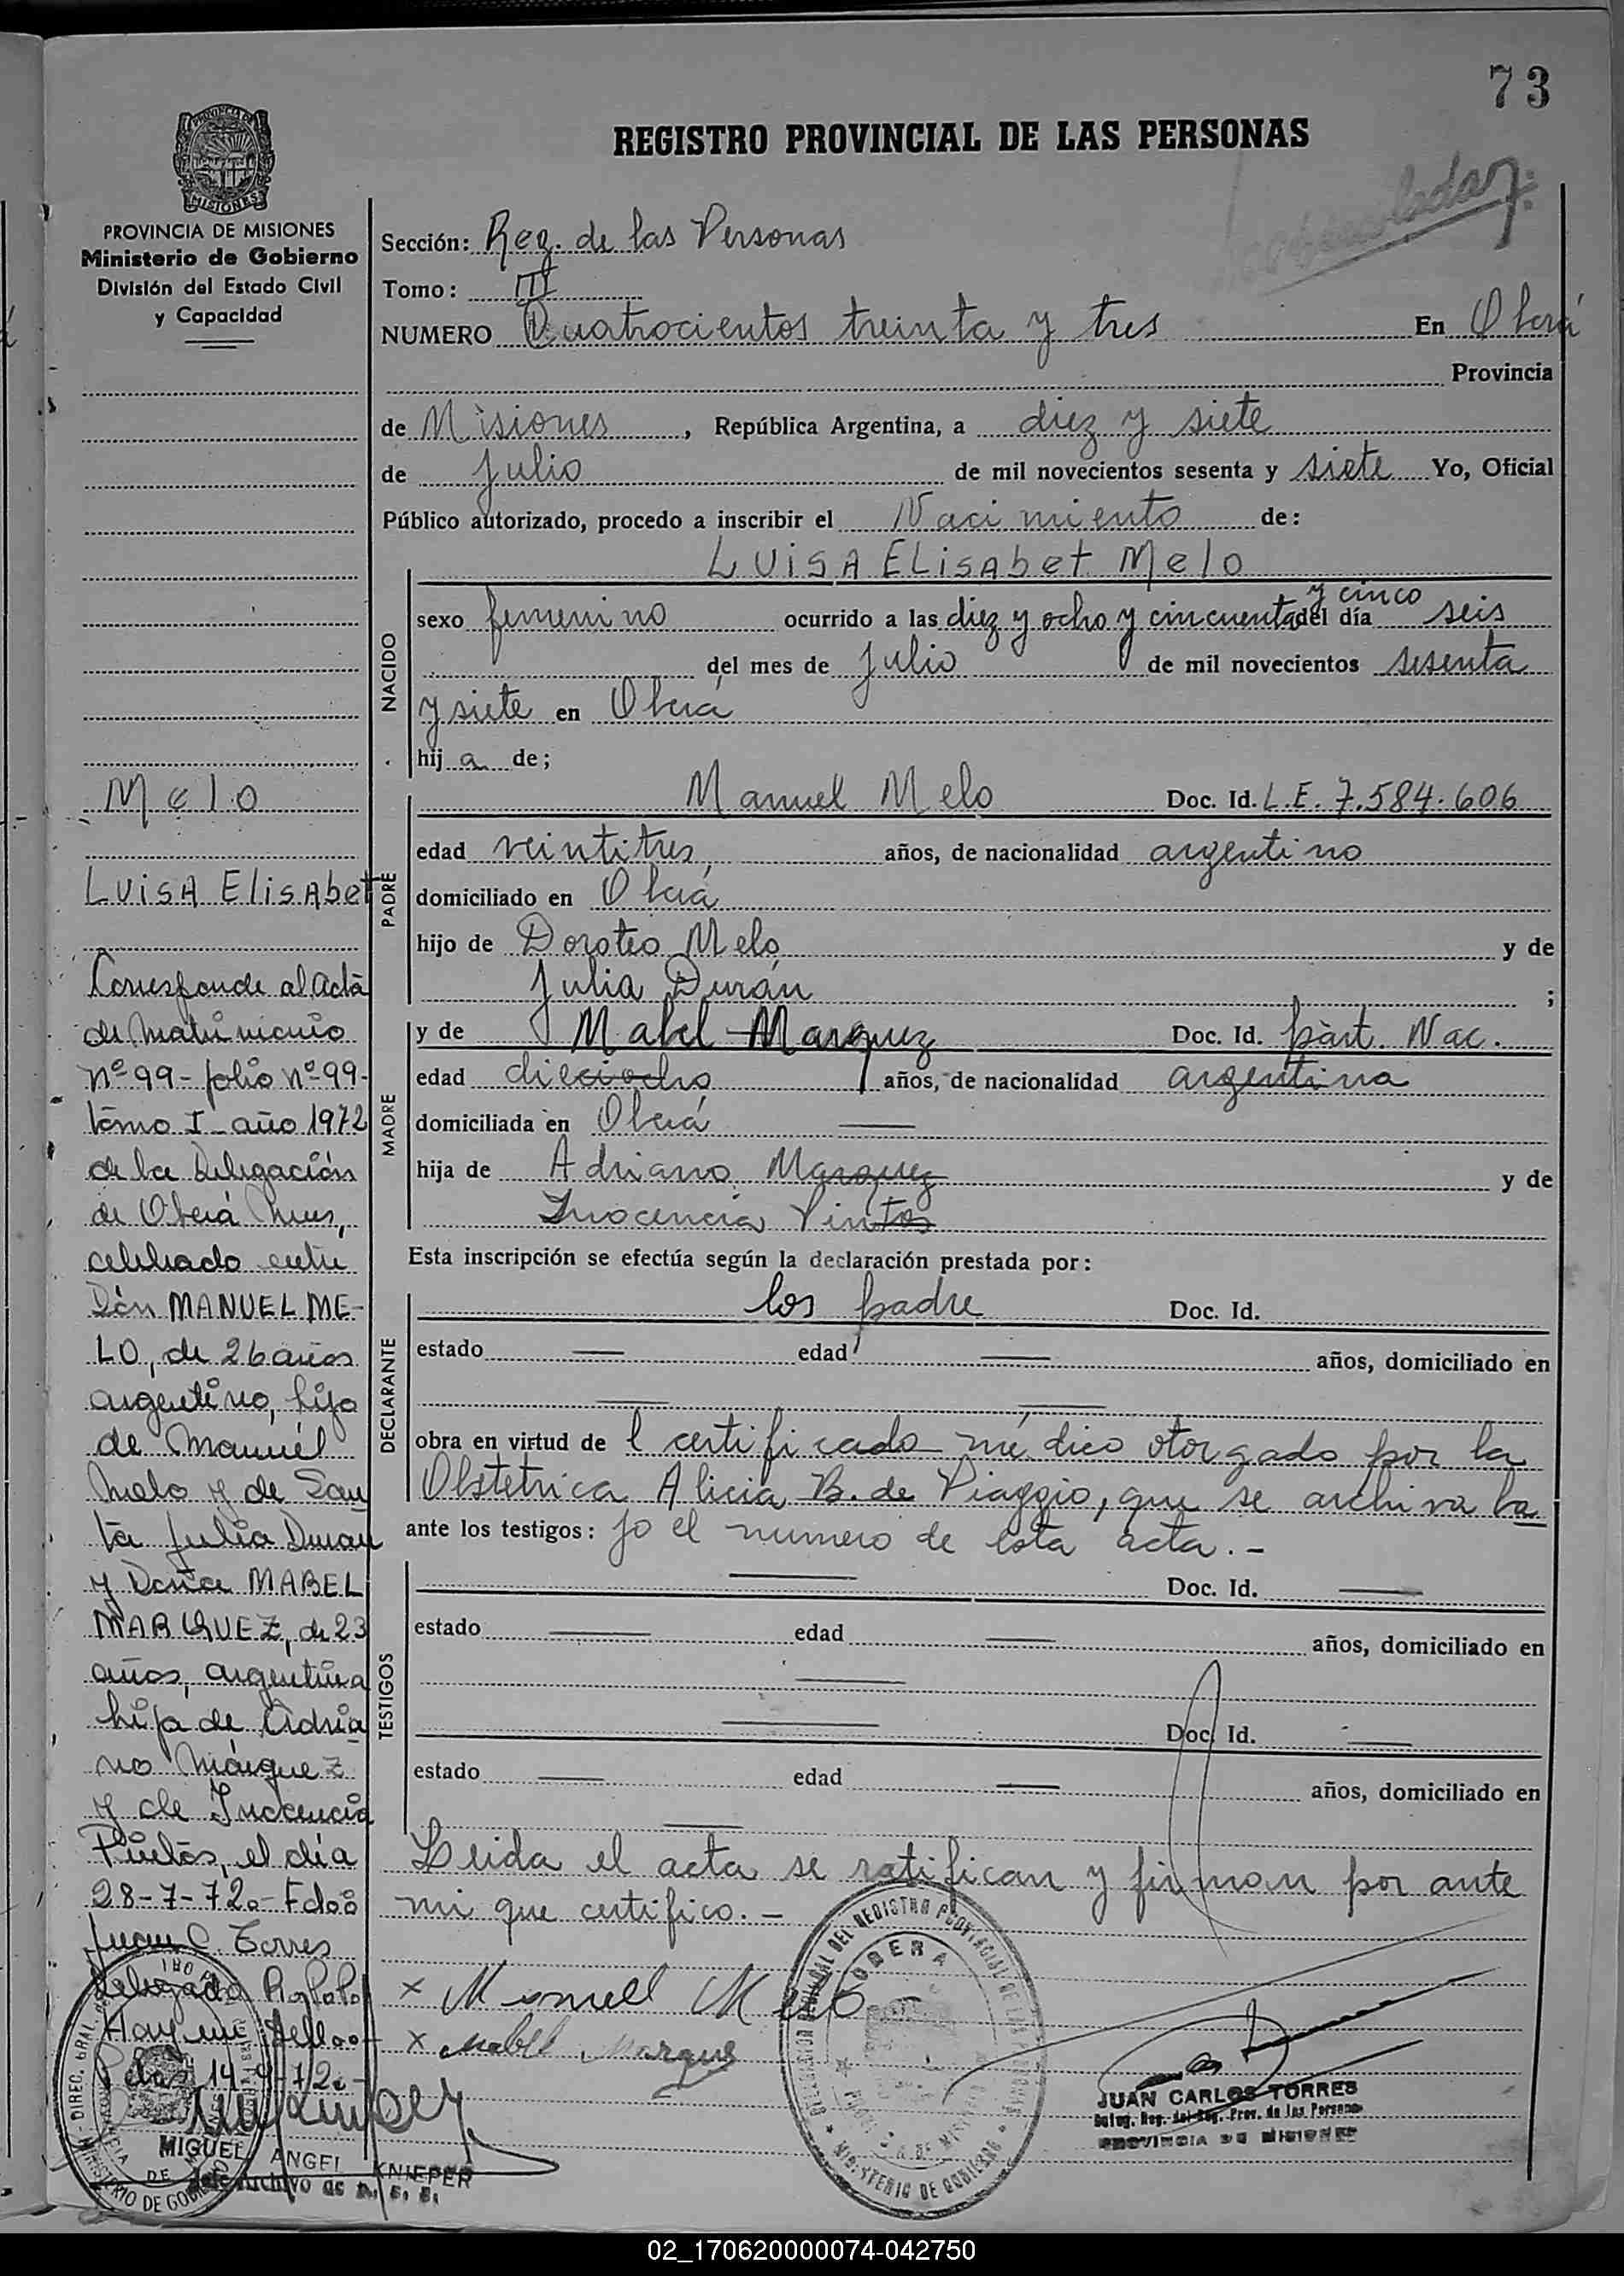 73
REGISTRO PROVINCIAL DE LAS PERSONAS
PROVINCIA DE MISIONES
Ministerio de Gobierno
División del Estado Civil
y Capacidad
Melo
Luisa Elisabet
Corresponde al acta
de matrimonio
nº 99 - folio nº 99-
tomo I - año 1972
de la Delegación
de Oberá Mnes,
celebrado entre
Don MANUEL ME-
LO, de 26 años
argentino, hijo
de Manuel
Melo y de San
ta Julia Duran
y Doña MABEL
MARQUEZ, de 23
años, argentina
hija de Adria
no Márquez
y de Inocencia
Pintos, el día
28-7-72.- Fdo:
Juan C. Torres
Delegado
Hay un sello.-
Pdas, 14-9-72.-
MIGUEL ANGEL KNIEPER
Jefe Archivo de
Sección: Reg. de las Personas
Tomo: III
NUMERO Quatrocientos treinta y tres En Oberá
Provincia
de Misiones, República Argentina, a diez y siete
de Julio de mil novecientos sesenta y siete Yo, Oficial
Público autorizado, procedo a inscribir el Nacimiento de:
LUISA ELisAbet Melo
NACIDO
y cinco
sexo femenino ocurrido a las diez y ocho y cincuenta del día seis
del mes de Julio de mil novecientos sesenta
y siete en Oberá
hij a de;
PADRE
Manuel Melo Doc. Id. L.E. 7.584.606
edad veintitres, años, de nacionalidad argentino
domiciliado en Oberá
hijo de Doroteo Melo y de
Julia Durán ;
MADRE
y de Mabel Marquez Doc. Id. part. Nac.
edad dieciocho años, de nacionalidad argentina
domiciliada en Oberá
hija de Adriano Marquez y de
Inocencia Pintos
Esta inscripción se efectúa según la declaración prestada por:
DECLARANTE
los padre Doc. Id.
estado — edad — años, domiciliado en
— —
obra en virtud de l certificado médico otorgado por la
Obstetrica Alicia B. de Piaggio, que se archiva ba
ante los testigos: jo el numero de esta acta.-
TESTIGOS
— Doc. Id. —
estado — edad — años, domiciliado en
—
— Doc. Id. —
estado — edad — años, domiciliado en
—
Leida el acta se ratifican y firman por ante
mi que certifico.-
x Manuel Melo
x Mabel Marque
OBERA
JUAN CARLOS TORRES
Deleg. Reg. del Reg. Prov. de las Personas
PROVINCIA DE MISIONES
02_170620000074-042750